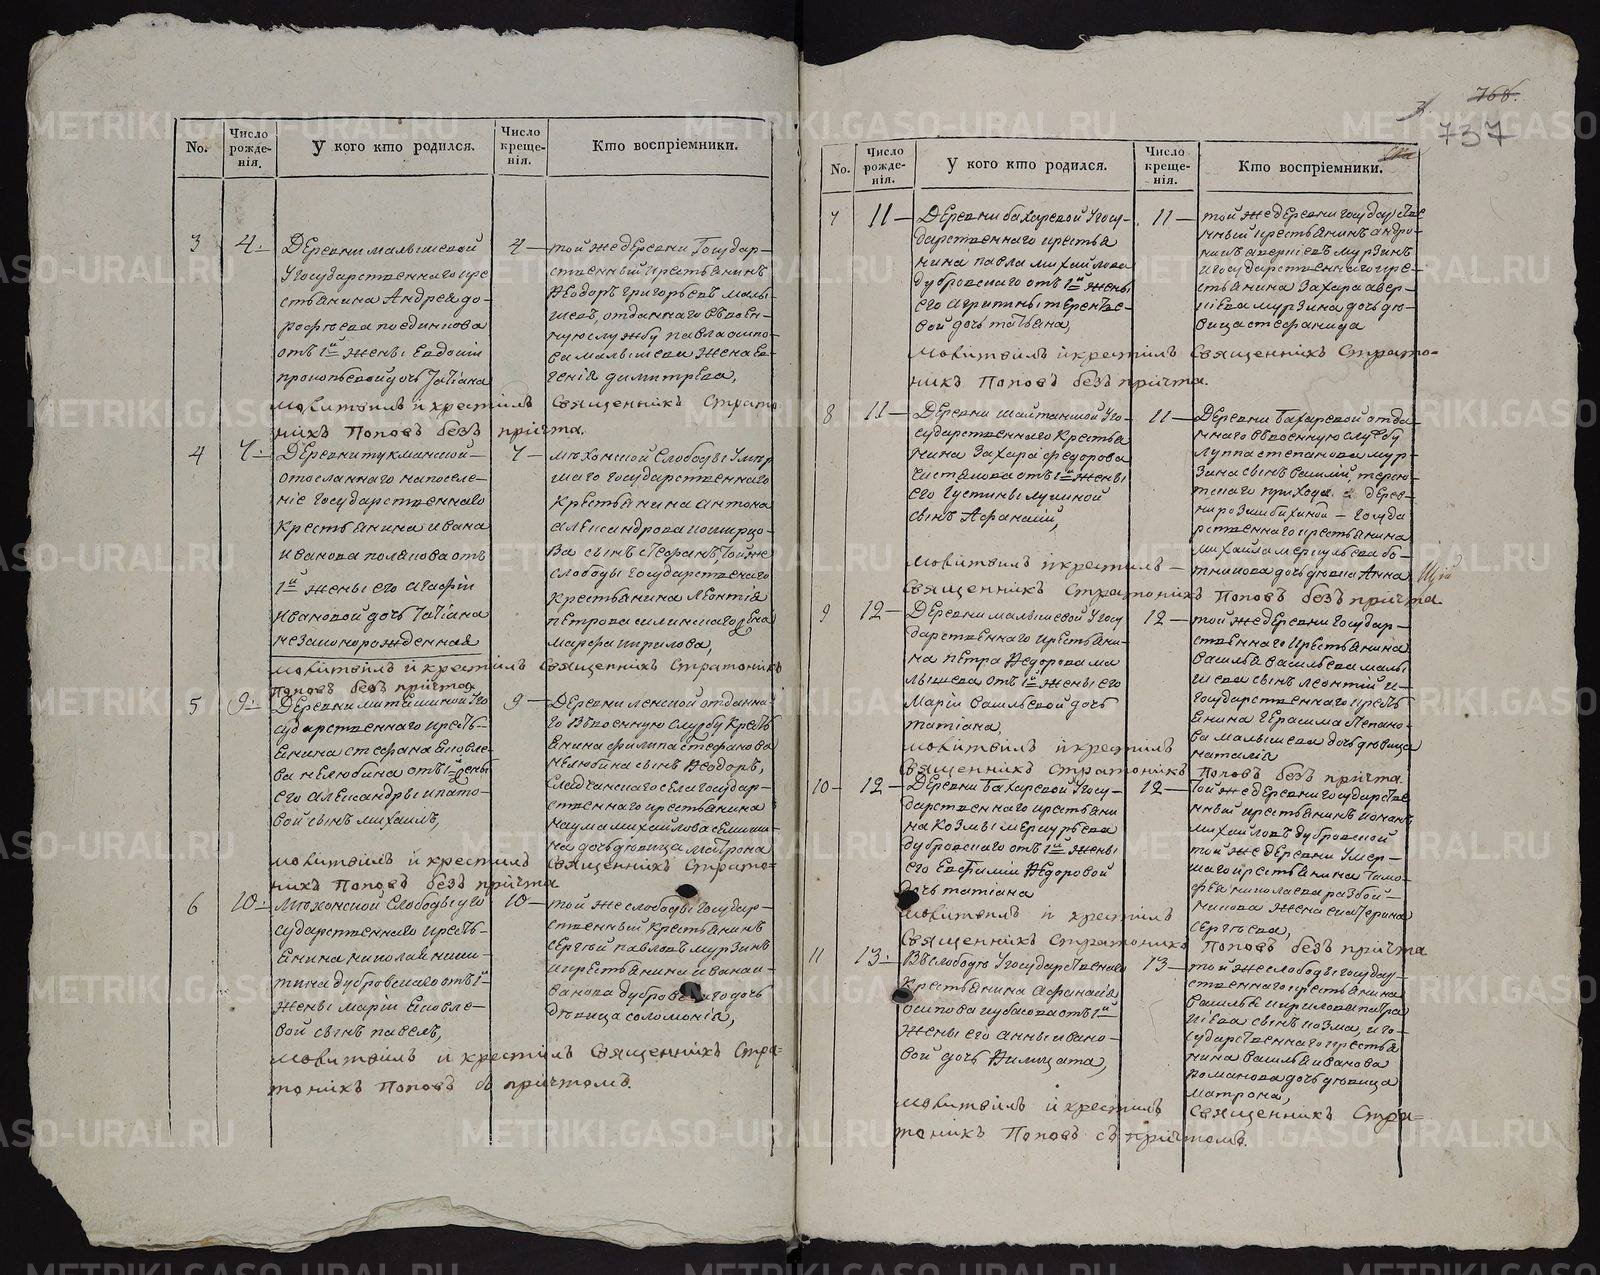 No.
Число рожде-нія.
У кого кто родился.
Число креще-нія.
Кто воспріемники.
3
4
Деревни малышевой
У государственнаго кре
стьянина Андрея до-
рофѣева поединкова
отъ 1й жены Евдокіи
прокопьевой дочь Татіана
4
той же деревни Государ-
ственный крестьянинъ
Ѳеодоръ григорьевъ малы-
шевъ, отданнаго въ воен-
ную службу павла осипо-
ва малышева жена Ев-
генія димитрева,
молитвилъ и крестилъ Священникъ Страто-
никъ Поповъ безъ причта.
4
7
Деревни тукманской
отосланнаго на поселе-
ніе государственнаго
крестьянина ивана
иванова полянова отъ
1й жены его агафіи
ивановой дочь Татіана
незаконорожденная
7
мѣхонской Слободы Умер
шаго государственнаго
Крестьянина антона
александрова
сынъ Стефанъ, той же
слободы государственнаго
крестьянина Леонтія
петрова жена
марфа кирилова,
молитвилъ и крестилъ Священникъ Стратоникъ
Поповъ безъ причта
5
9
Деревни У го
сударственнаго кресть-
янина стефана яковле-
ва нелюбина отъ 1й жены
его александры ипато-
вой сынъ михаилъ,
9
Деревни ленской отданна-
го въ военную службу кресть
янина филипа стефанова
нелюбина сынъ Ѳеодоръ,
села государ-
ственнаго крестьянина
наума михайлова
дочь дѣвица матрона
молитвилъ и крестилъ Священникъ Страто-
никъ Поповъ безъ причта
6
10
Мѣхонской Слободы у го
сударственнаго кресть-
янина николая ники-
тина дубровскаго отъ 1й
жены маріи яковле-
вой сынъ павелъ,
10
той же слободы государ-
ственный крестьянинъ
сергѣй павловъ мурзинъ
и крестьянина ивана и-
ванова дубровскаго дочь
дѣвица соломонія,
молитвилъ и крестилъ Священникъ Стра-
тоникъ Поповъ съ причтомъ.
768.
737
No.
Число рожде-нія.
У кого кто родился.
Число креще-нія.
Кто воспріемники.
7
11
Деревни бахаревой У госу-
дарственнаго крестья
нина павла михайлова
дубровскаго отъ 1й жены
его агрипины терентье-
вой дочь татьяна,
11
той же деревни государстве
нный крестьянинъ андро-
никъ аверкіевъ мурзинъ
и государственнаго кре-
стьянина Захара авер-
кіева мурзина дочь дѣ-
вица стефанида
молитвилъ и крестилъ Священникъ Страто-
никъ Поповъ безъ причта.
8
11
Деревни шайтанской У го-
сударственнаго Крестья
нина Захара федорова
отъ 1й жены
его Іустины лукиной
сынъ Афанасій,
11
Деревни Бахаревой отда-
ннаго въ военную службу
луппа степанова мур-
зина сынъ василій,
прихода дерев-
ни госуда
рственнаго крестьянина
михайла меркульева бо-
тникова дочь дѣвица Анна
молитвилъ и крестилъ
Священникъ Стратоникъ Поповъ безъ причта.
9
12
Деревни малышевой У госу
дарственнаго крестьяни-
на петра Ѳедорова ма
лышева отъ 1й жены его
Маріи Васильевой дочь
татіана,
12
той же деревни государ-
ственнаго крестьянина
василья васильева малы
шева сынъ леонтій и
государственнаго кресть
янина Герасима степано-
ва малышева дочь дѣвица
наталія
молитвилъ и крестилъ
Священникъ Стратоникъ Поповъ безъ причта.
10
12
Деревни Бахаревой У госу-
дарственнаго крестьяни
на Козмы меркурьева
дубровскаго отъ 1й жены
его Евфиміи Ѳедоровой
дочь татіана
12
той же деревни государстве
нный крестьянинъ
михайловъ дубровской
той же деревни Умер-
шаго крестьянина Тимо-
фея николаева разбой-
никова жена екатерина
сергѣева,
молитвилъ и крестилъ
Священникъ Стратоникъ Поповъ безъ причта
11
13
Въ слободѣ У государственаго
Крестьянина Афанасія
осипова отъ 1й
жены его анны ивано-
вой дочь Ѳилицата,
13
той же слободы государ-
ственнаго крестьянина
василья кирилова
сынъ козма, и го-
сударственнаго крестья
нина василья иванова
романова дочь дѣвица
матрона,
молитвилъ и крестилъ Священникъ Стра-
тоникъ Поповъ съ причтомъ.
METRIKI.GASO-URAL.RU